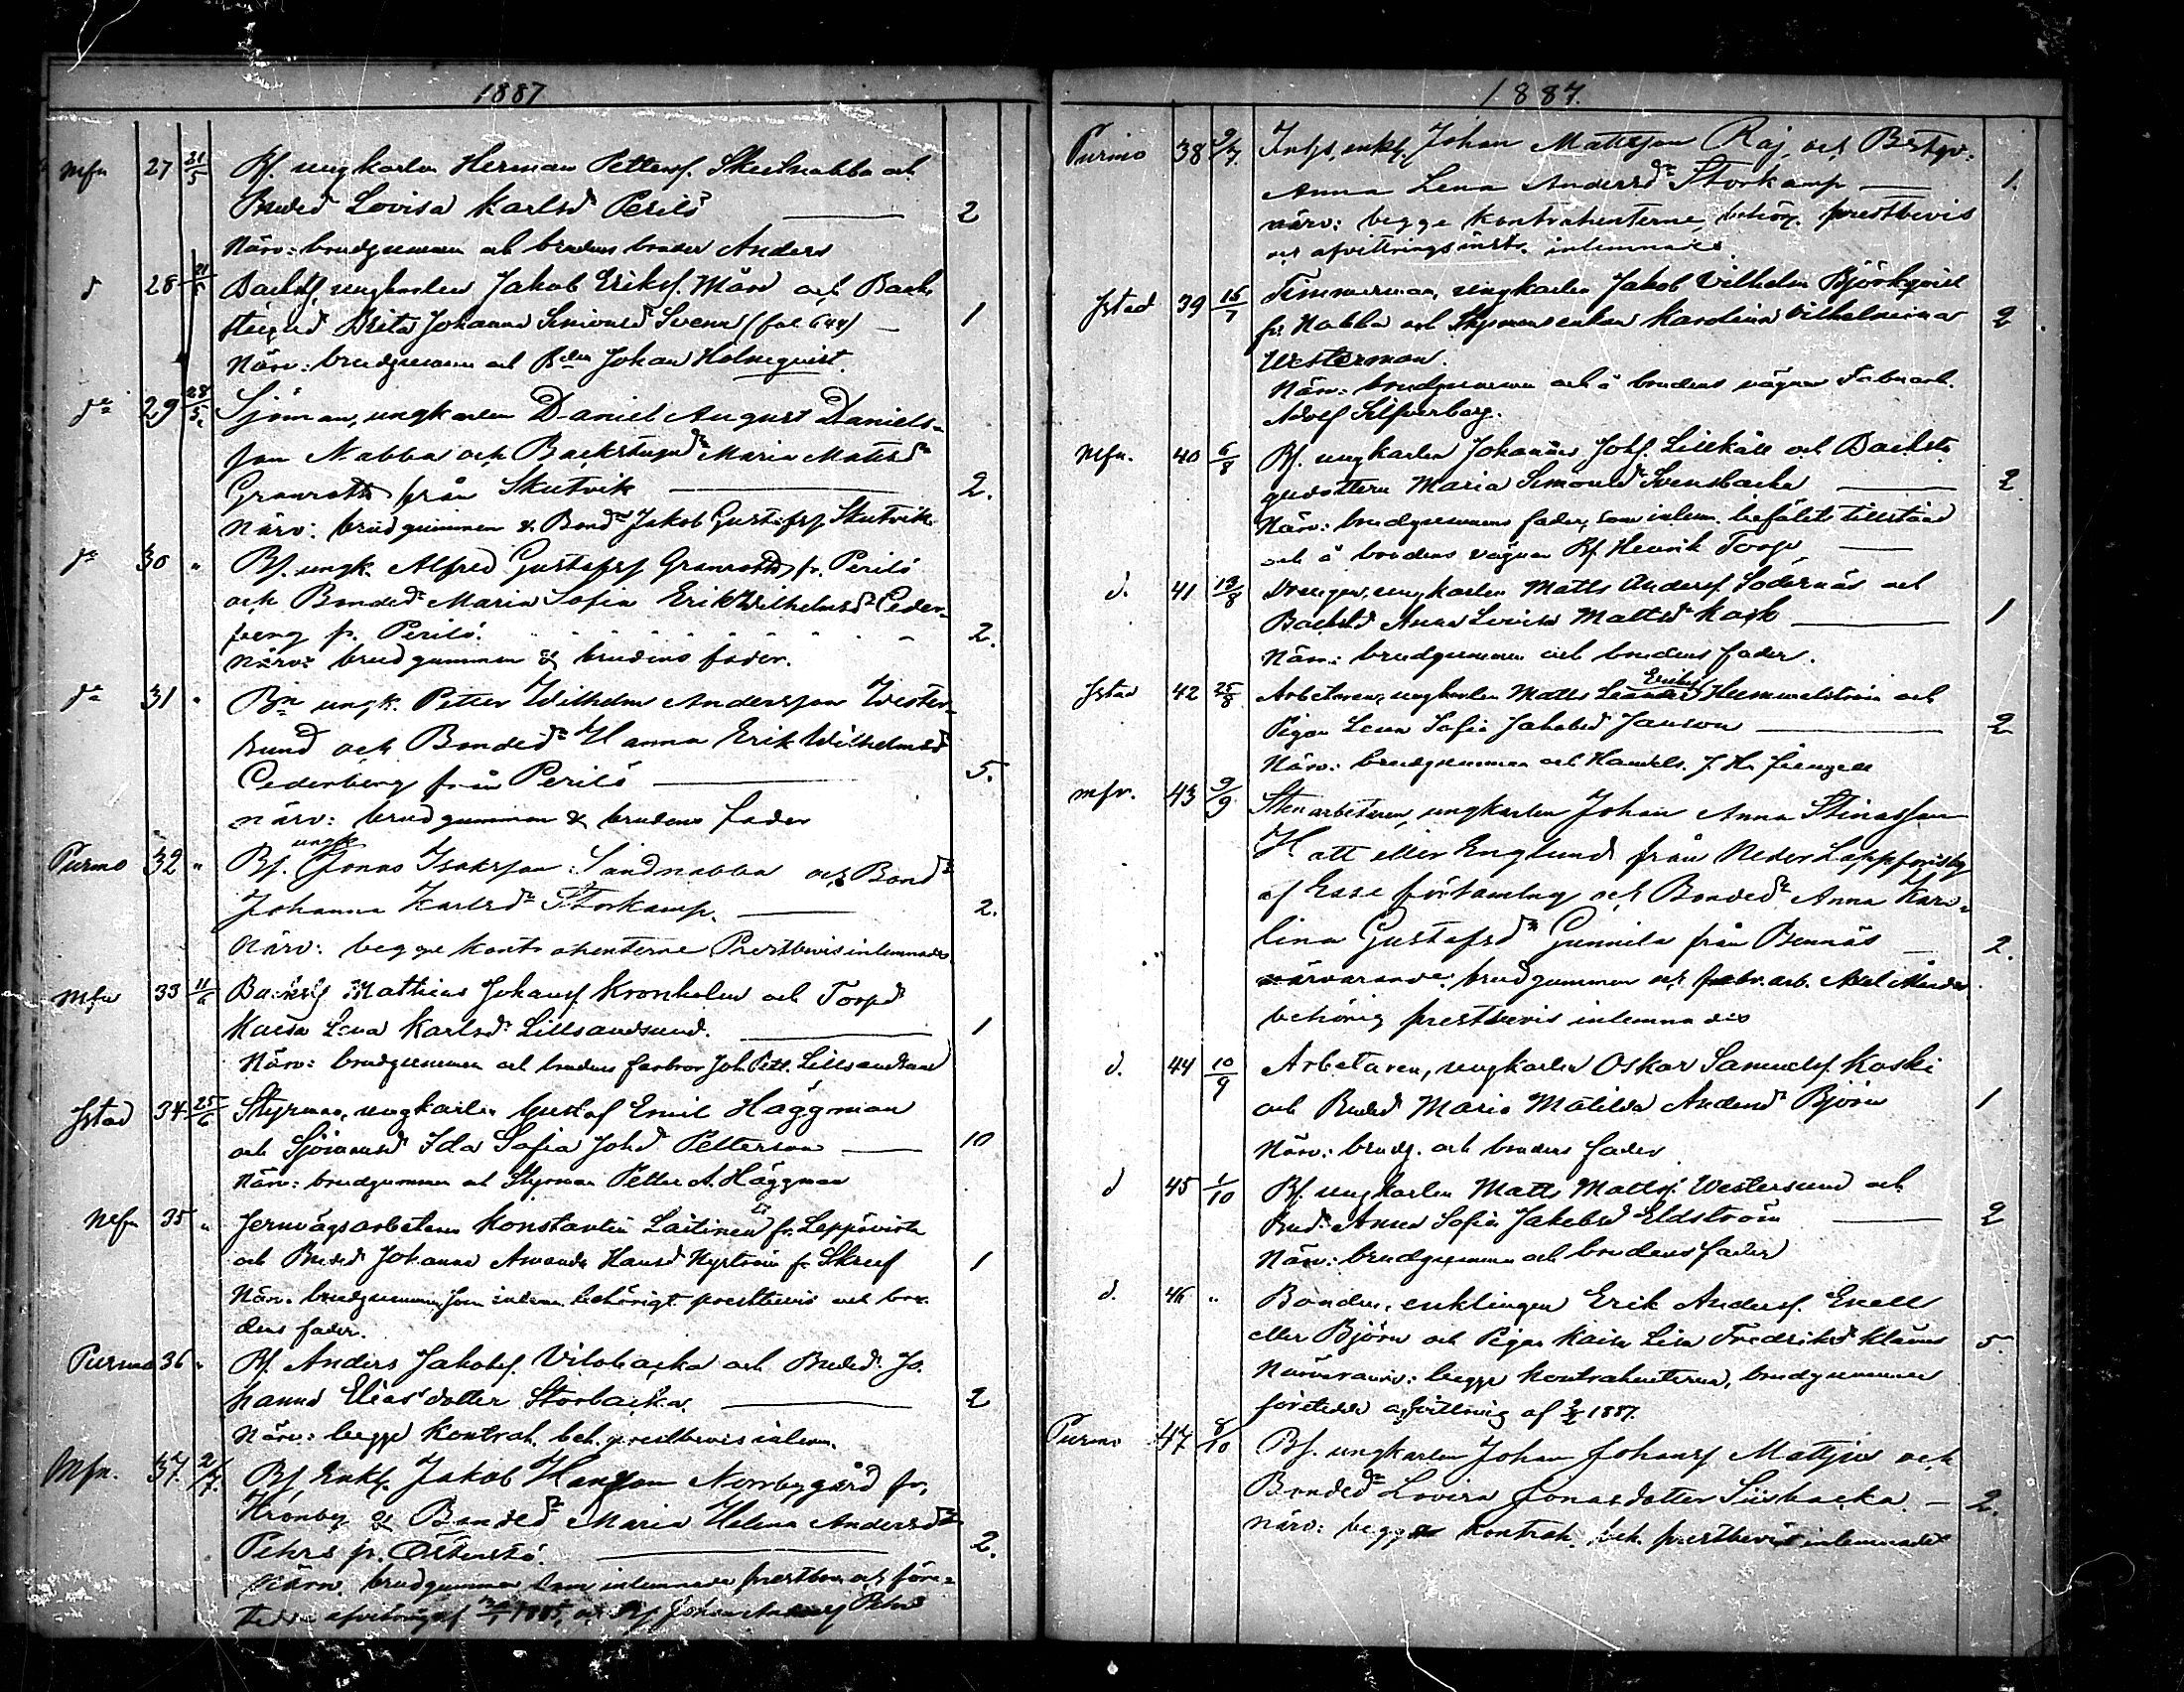 1887
Mfn 27 21/5 Bf. ungkarlen Herman Petters. Skutnabba och
Bonded Lovisa Karlsd Perilö — 2
Närv: brudgummen och brudens broder Anders
d 28 21/5 Backstf. ungkarlen Jakob Eriksf. Mård och Back
stugud Brita Johanna Simonsd Svenn (fol 644) — 1
Närv: brudgummen och Johan Holmqvist.
do 29 28/5 Sjöman, ungkarlen Daniel August Daniels-
son Nabba och Backstugud Maria Matsdr
Granroth från Skutvik — 2.
Närv: brudgummen & Bond Jakob Gustafsf. Skutvik
do 30 " Bf. ungk. Alfred Gustafsf Granroth fr. Perilö
och Bonded Maria Sofia Erik Wilhelmsdr Ceder-
berg fr. Perilö. 2.
närv: brudgummen & brudens fader.
do 31 " Bn ungk. Petter Wilhelm Andersson Wester-
sund och Bonded Hanna Erik Wilhelmsd
Cederberg från Perilö — 5.
närv: brudgummen & brudens fader
Purmo 32 " Bf. ungk Jonas Isaksson Sandnabba och Bondr
Johanna Karlsdr Storkamp. — 2.
Närv: begge kontrahenterne Prestbevis inlemnades
Mfn 33 11/6 Mathias Johansf. Kronholm och Torpd
Kaisa Lena Karlsdr Lillsandsund. — 1
Närv: brudgummen och brudens farbror Joh. Pett. Lillsandsund
Jstad 34 25/6 Styrman, ungkarlen Gustaf Emil Häggman
och Sjömansd Ida Sofia Johd Petterson — 10
Närv: brudgummen och Styrman Petter A. Häggman
Mfn 35 " Jernvägsarbetaren Konstantin Laitinen fr. Leppävirta
och Bonded Johanna Amanda Hansd Nyström fr Skref 1
Närv. brudgummen, som inlemn. behörigt prestbevis och bru-
dens fader.
Purmo 36 " Bf. Anders Jakobsf. Vilobacka och Bonded Jo-
hanna Eliasdotter Storbacka. — 2
Närv: begge kontrah. beh. prestbevis inlemn.
Mfn. 37. 2/7. Bf, Enkl. Jakob Hansson Norrbygård fr.
Kronby & Bonded Maria Helena Andersdr
Pehrs fr. Östensö. — 2.
Närv. brudgummen som inlemnade prestbev. och före-
tedde afvittring af 1885, och Bf Johan Andersf Pehrs
1887.
Purmo 38 2/7. Inhs, enkl, Johan Mattsson Raj, och Bstgr.
Anna Lena Andersdr Storkamp — 1.
närv: begge kontrahenterne, behörg. prestbevis
och afvittringsinstr. inlemnades
Jstad 39 16/7 Timmerman, ungkarlen Jakob Vilhelm Björkqvist
fr. Nabba och Styrmansenkan Karolina Vilhelmina 2
Westerman.
Närv: brudgummen och å brudens vägnar Fabr.arb.
Adolf Silfverberg.
Mfn. 40 6/8 Bf. ungkarlen Johannes Johsf. Lillkåll och Backstu
gudottern Maria Simonsd Svensbacka — 2
Närv: brudgummens fader, som inlemn. befälets tillstånd
och å brudens vägnar Bf. Henrik Torp —
d. 41 13/8 Drengen, ungkarlen Matts Andersf. Södernäs och
Backstd Anna Lovisa Mattsd Kack — 1
Närv: brudgummen och brudens fader.
Jstad 42 25/8 Arbetaren, ungkarlen Matts Leander Eriksf Hummelström och
Pigan Lena Sofia Jakobsd Janson — 2
Närv: brudgummen och Handels. J. H.
mfn. 43 9/9 Stenarbetaren, ungkarlen Johan Anna Stinasson
Hatt eller Englund från Neder Lappfors by
af Esse församling och Bonded Anna Karo-
lina Gustafsdr Gunnila från Bennäs — 2.
närvarande: brudgummen och fabr. arb. Axel
behörig prestbevis inlemnades
d. 44 10/9 Arbetaren, ungkarlen Oskar Samuelsf. Koski
och Bonded Maria Matilda Andersd Björn 1
Närv: brudg. och brudens fader
d 45 1/10 Bf. ungkarlen Matts Mattsf. Westersund och
Bond. Anna Sofia Jakobsd Eldström — 2
Närv: brudgummen och brudens fader
d. 46 " Bonden, enklingen Erik Andersf. Enell
eller Björn och Pigan Kaisa Lisa Fredriksd Kläms 5.
Närvarande: begge kontrahenterna, brudgummen
företedde afvittring af 1887.
Purmo 47 8/10 Bf. ungkarlen Johan Johansf Mattjus och
Bondedr Lovisa Jonasdotter Sisbacka. — 2.
närv: begge kontrah. beh. prestbevis inlemnades